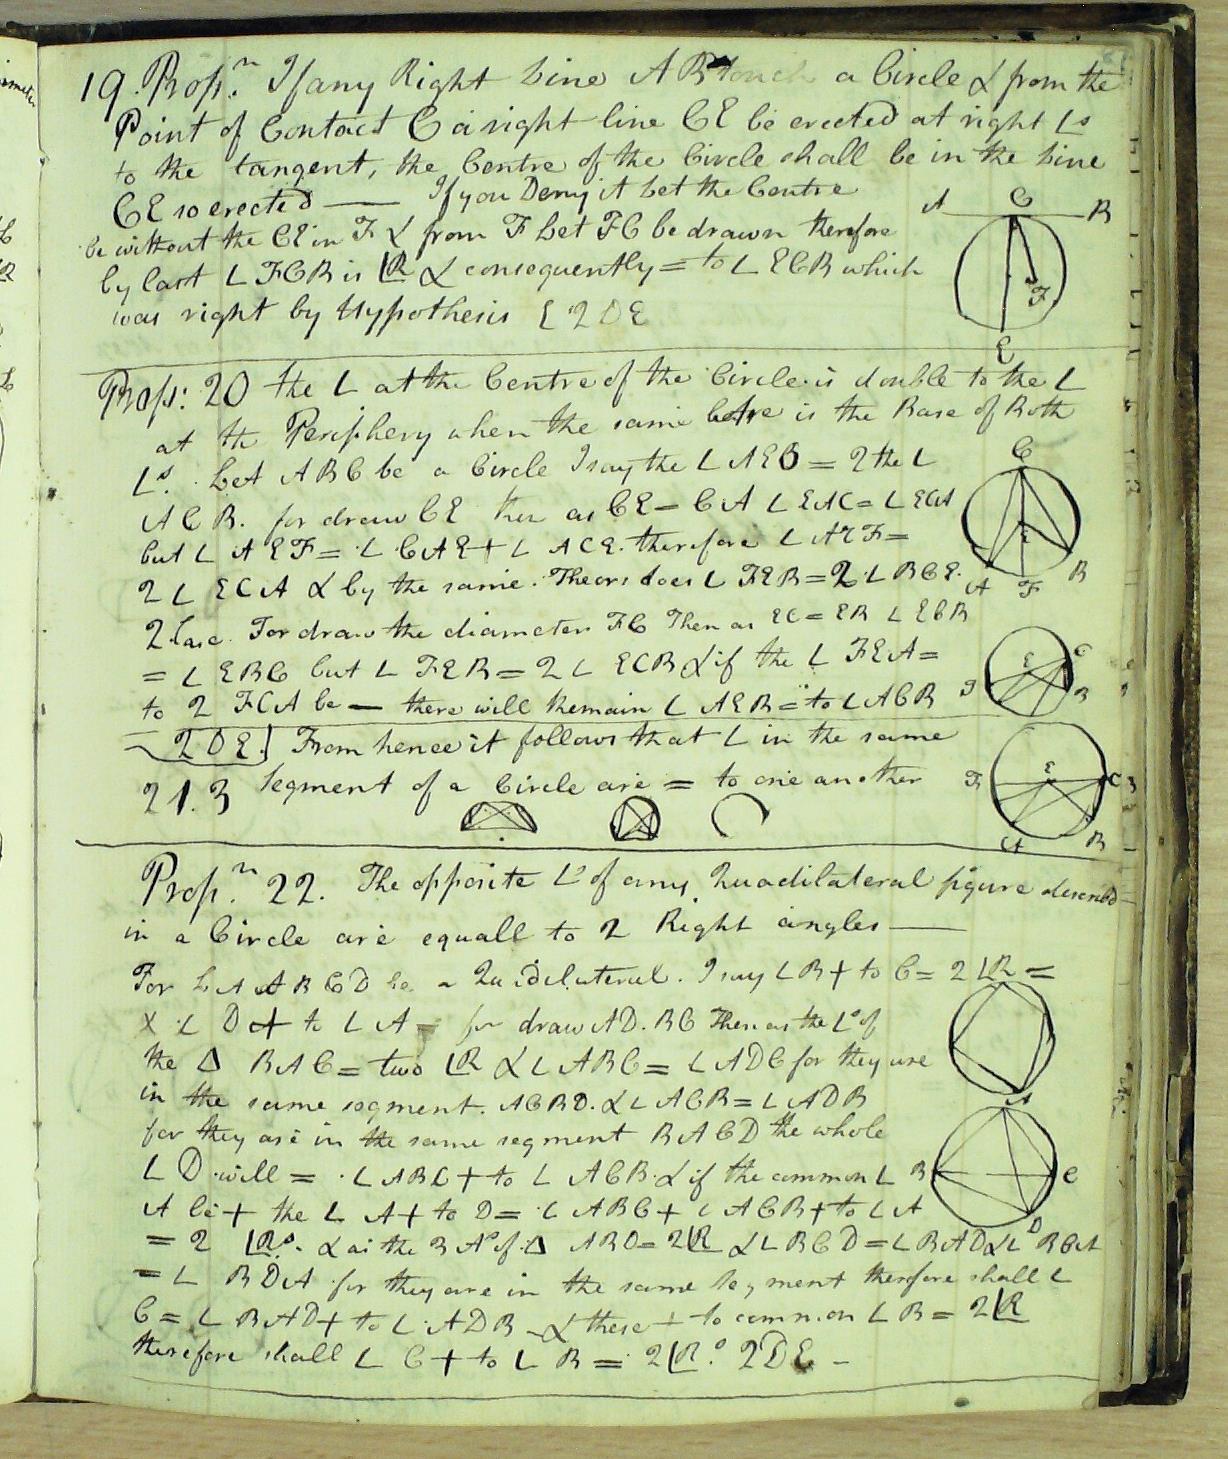 19. Propn. If any Right Line AB touch a Circle & from the
Point of Contact C a right line CE be erected at right Ls
to the tangent, the Centre of the Circle shall be in the Line
CE so erected — If you Deny it Let the Centre
be without the CE in F & from F Let FC be drawn therefore
by last L FCB is LR & consequently = to L ECB which
was right by Hypothesis [ QDE
A C B
F
E
Prop: 20 the L at the Centre of the Circle is double to the L
at the Periphery when the same is the Base of Both
Ls. Let ABC be a Circle I say the L AEB = 2 the L
ACB. for draw CE then as CE = CA L EAC = L ECA
but L AEF = L CAE + L ACE. therefore L AEF =
2 L ECA & by the same. Theor: does L FEB = 2 L BCE.
C
E
A F B
2 Case. For draw the diameter FC Then as EC = EB L ECB
= L EBC but L FEB = 2 L ECB & if the L FEA =
to 2 FCA be — there will Remain L AEB = to L ACB
E C
F B
QDE] From hence it follows that L in the same
21.3 Segment of a Circle are = to one another
F E C
A B
Propn. 22. The opposite Ls of any Quadilateral figure described
in a Circle are equall to 2 Right angles —
For Let ABCD be a Quadilateral. I say L B + to C = 2 LR =
X L D + to L A = for draw AD. BC Then as the Ls of
the Δ BAC = two LR & L ABC = L ADC for they are
in the same segment. ACBD. & L ACB = L ADB
for they are in the same segment BACD the whole
L D will = L ABC + to L ACB & if the common L
A be + the L A + to D = L ABC + L ACB + to L A
= 2 LRs. & as the 3 As of Δ ABD = 2 LR & L BCD = L BAD & L BCA
= L BDA for they are in the same Segment therefore shall L
C = L BAD + to L ADB & these + to common L B = 2 LR
therefore shall L C + to L B = 2 LRs. QDE —
A
B C
D